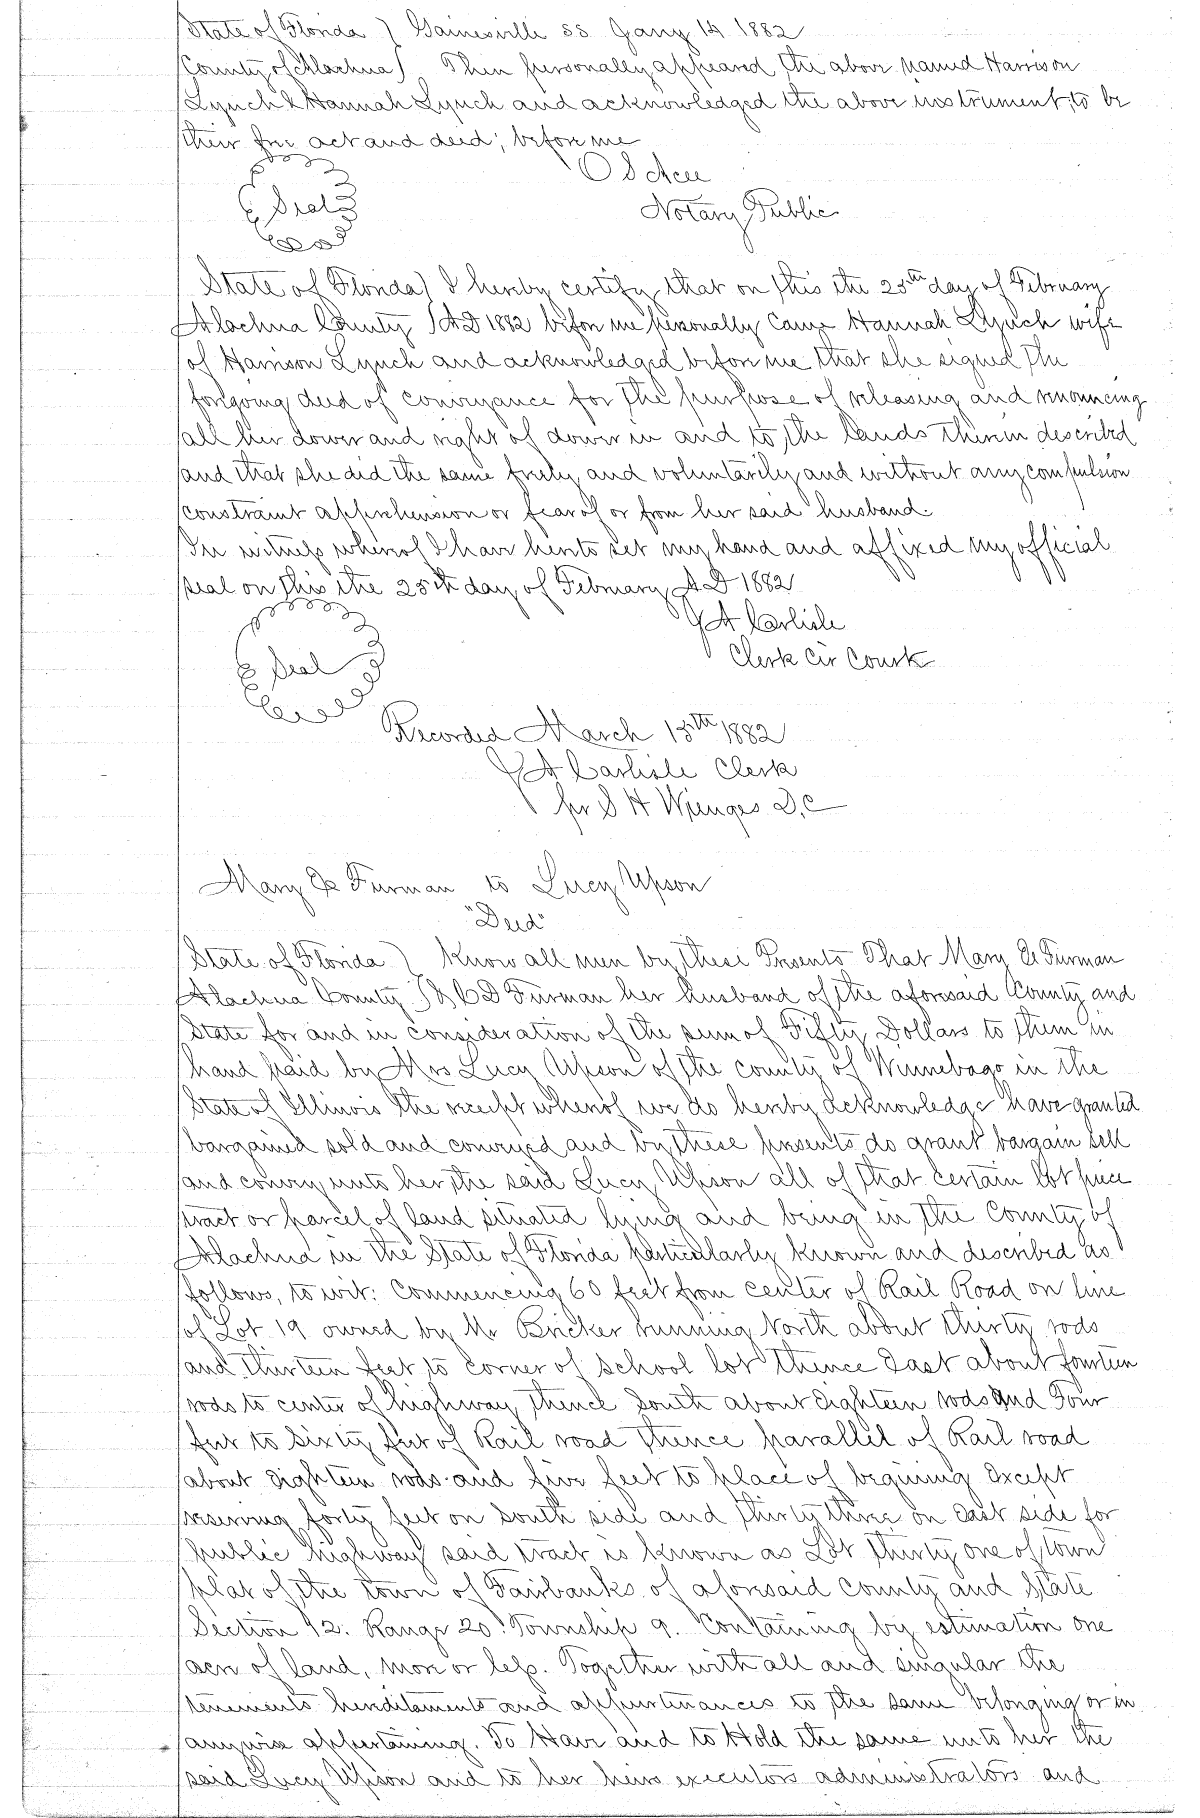 State of Florida ) Gainesville ss Jany 14 1882
County of Alachua ) Then personally appeared the above named Harrison
Lynch & Hannah Lynch and acknowledged the above instrument, to be
their free act and deed; before me
O S
Notary Public
Seal
State of Florida ) I hereby certify that on this the 25th day of February
Alachua County ) A D 1882 before me personally came Hannah Lynch wife
of Harrison Lynch and acknowledged before me that she signed the
foregoing deed of conveyance for the purpose of releasing and renouncing
all her dower and right of dower in and to, the lands therein described
and that she did the same freely and voluntarily and without any compulsion
constraint apprehension or fear of or from her said husband.
In witness whereof I have hereto set my hand and affixed my official
seal on this the 25th day of February A D 1882
J A Carlisle
Clerk Cir Court
Seal
Recorded March 15th 1882
J A Carlisle Clerk
per S H Wienges D.C
Mary E Furman to Lucy Upson
"Deed"
State of Florida ) Know all men by these Presents That Mary E Furman
Alachua County ) & C D Furman her husband of the aforesaid County and
State for and in consideration of the sum of Fifty Dollars to them in
hand paid by Mrs Lucy Upson of the county of Winnebago in the
State of Illinois the receipt whereof we do hereby acknowledge have granted
bargained sold and conveyed and by these presents do grant bargain sell
and convey unto her, the said Lucy Upson all of that certain lot piece
tract or parcel of land situated lying and being in the County of
Alachua in the State of Florida particularly known and described as
follows, to wit: Commencing 60 feet from center of Rail Road on line
of Lot 19 owned by Mr Bricker running North about thirty rods
and thirteen feet to corner of school lot thence East about fourteen
rods to center of highway, thence South about Eighteen rods and Four
feet to Sixty feet of Rail road thence parallel of Rail road
about Eighteen rods and five feet to place of begining Except
reserving forty feet on South side and thirty three on East side for
public highway said tract is known as Lot thirty one of town
plat of the town of Fairbanks of aforesaid county and State
Section 12. Range 20. Township 9. Containing by estimation one
acre of land, more or less. Together with all and singular the
tenements hereditaments and appurtinances to the same belonging or in
anywise appertaining. To Have and to Hold the same unto her the
said Lucy Upson and to her heirs executors administrators and